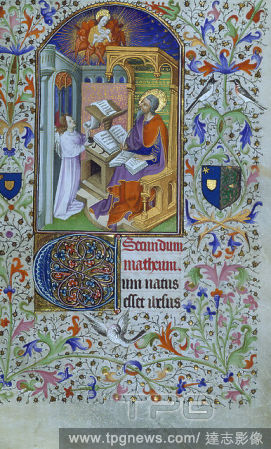 Secundum
matheum.
Cum natus
esset iesus
TPG
www.tpgnews.com/達志影像